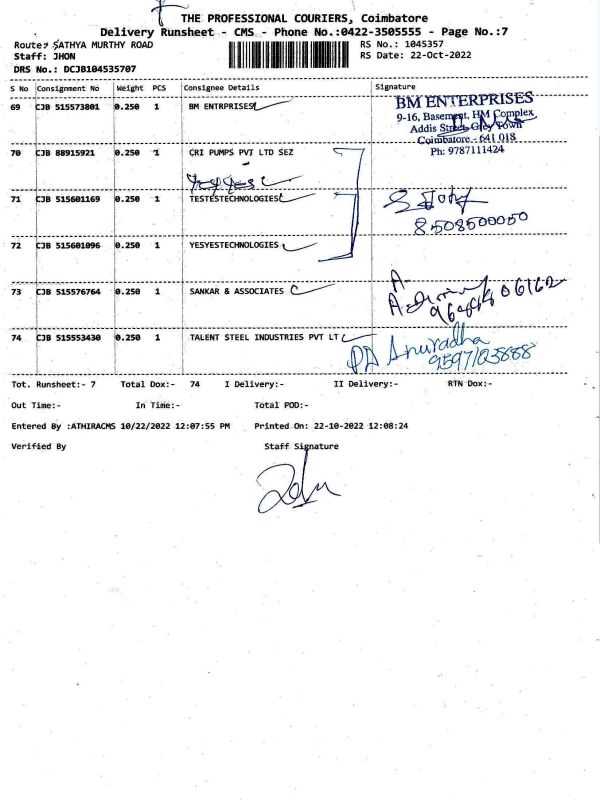 THE PROFESSIONAL COURIERS, Coimbatore
Delivery Runsheet - CMS - Phone No.:0422-3505555 - Page No.:7
Route: SATHYA MURTHY ROAD RS No.: 1045357
Staff: JHON RS Date: 22-Oct-2022
DRS No.: DCJB104535707
S No Consignment No Weight PCS Consignee Details Signature
69 CJB 515573801 0.250 1 BM ENTRPRISES
BM ENTERPRISES
9-16, Basement, HM Complex
Addis Street, Grey Town
Coimbatore - 641 018
Ph: 9787111424
70 CJB 88915921 0.250 1 CRI PUMPS PVT LTD SEZ
71 CJB 515601169 0.250 1 TESTESTECHNOLOGIES
8508500050
72 CJB 515601096 0.250 1 YESYESTECHNOLOGIES
73 CJB 515576764 0.250 1 SANKAR & ASSOCIATES
74 CJB 515553430 0.250 1 TALENT STEEL INDUSTRIES PVT LT
Anuradha
9597103888
Tot. Runsheet:- 7 Total Dox:- 74 I Delivery:- II Delivery:- RTN Dox:-
Out Time:- In Time:- Total POD:-
Entered By :ATHIRACMS 10/22/2022 12:07:55 PM Printed On: 22-10-2022 12:08:24
Verified By Staff Signature